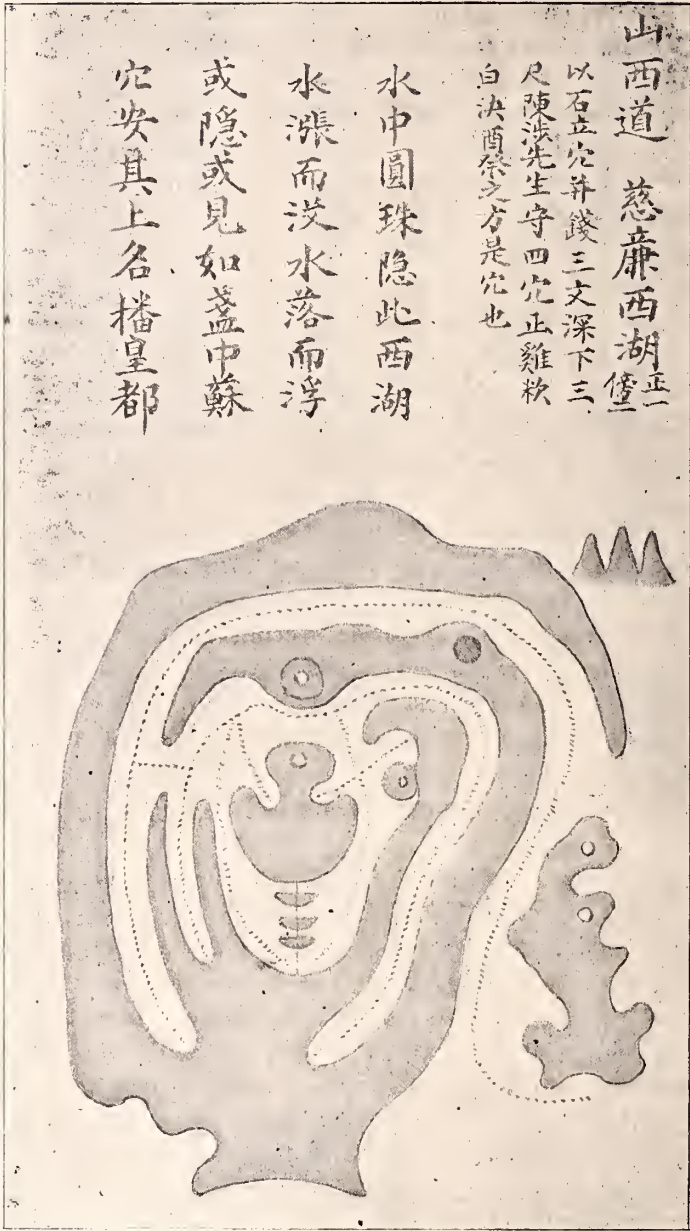 山西道 慈廉西湖 正一 傍二
以石立穴并錢三文深下三
尺陳涉先生守四穴正雞籹
白決酉祭之方是穴也
水中圓珠隐此西湖
水漲而没水落而浮
或隐或見如盞中蘇
穴安其上名播皇都